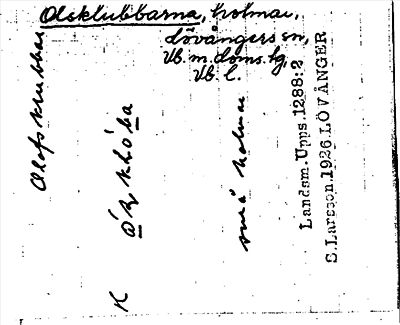 Olsklubbarna, holmar,
Lövångers sn,
Vb. m. doms.hg,
Vb. l.
Olofskrubbar
små holmar
Landsm.Upps.1288:2
S.Larsson.1926.LÖVÅNGER
K